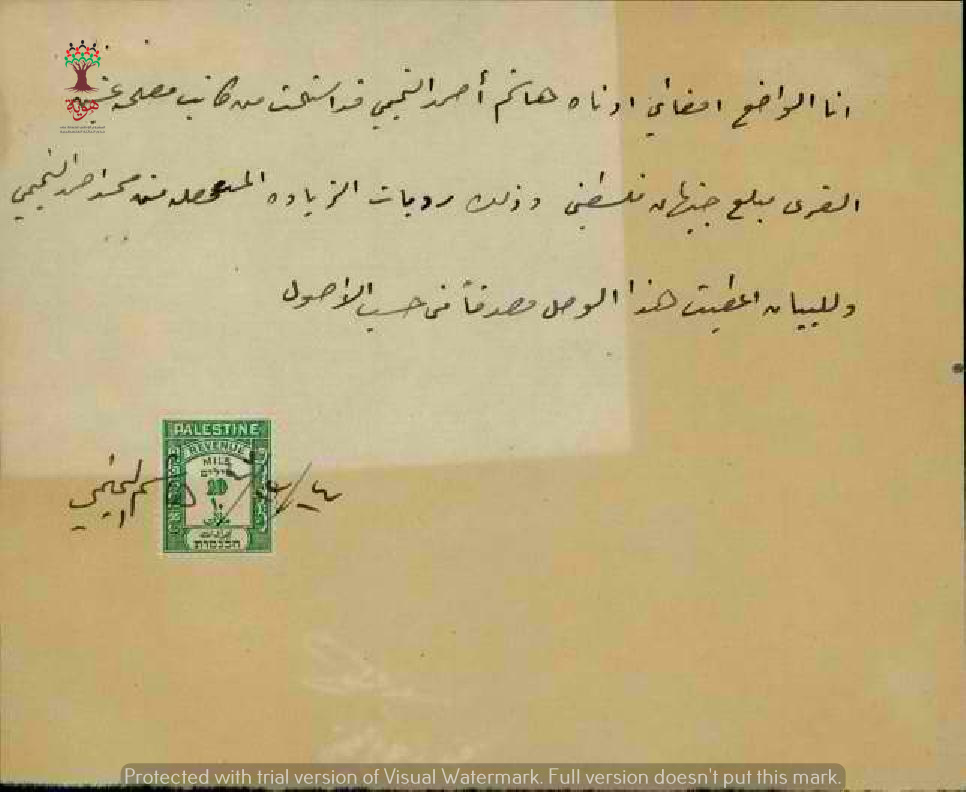 انا الواضع امضائي ادناه هاشم أحمد النجيمي قد استلمت من كاتب مصلحة
القرى مبلغ جنيهان فلسطيني وذلك رديات الزياده المتحصله من محمد احمد النجيمي
وللبيان اعطيت هذا الوصل مصدقاً مني حسب الاصول
هوية
PALESTINE
REVENUE
MILS
מילים
١٠
הכנסות
النجيمي
Protected with trial version of Visual Watermark. Full version doesn't put this mark.